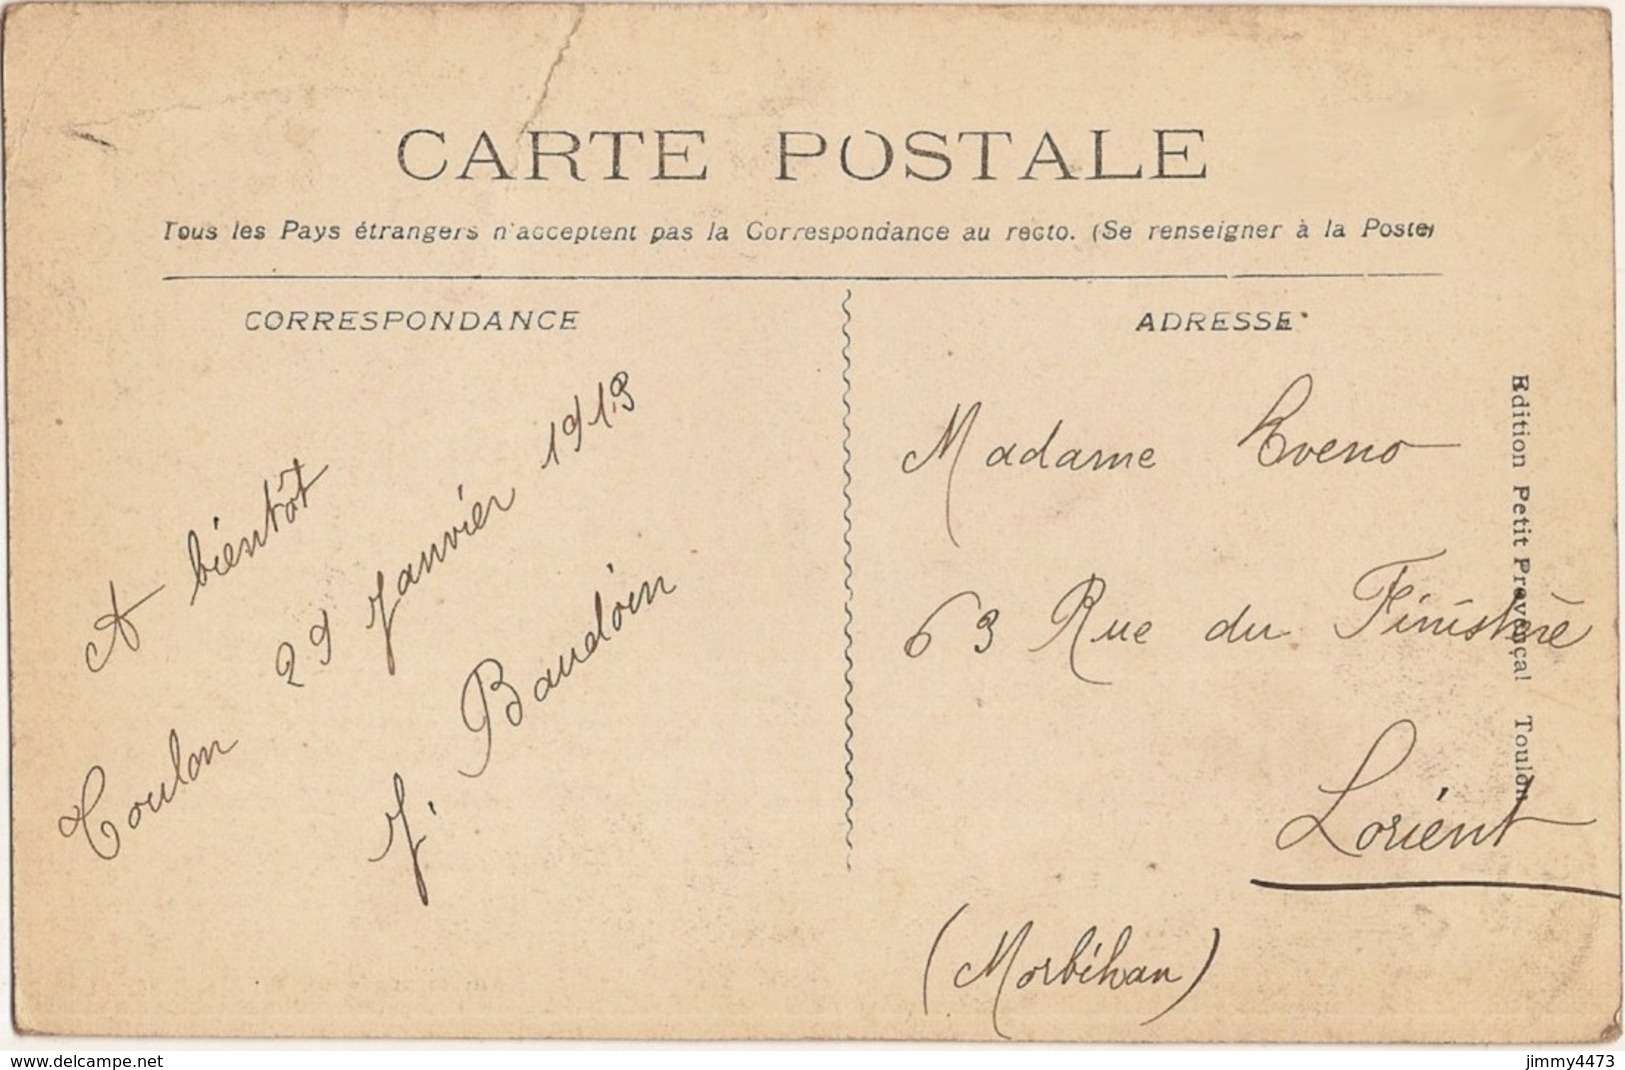 CARTE POSTALE
Tous les Pays étrangers n'acceptent pas la Correspondance au recto. (Se renseigner à la Poste)
CORRESPONDANCE
A bientôt
Toulon 29 Janvier 1913
J. Baudoin
ADRESSE
Madame Eveno
63 Rue du Finistère
Lorient
(Morbihan)
Edition Petit Provençal Toulon
www.delcampe.net
jimmy4473